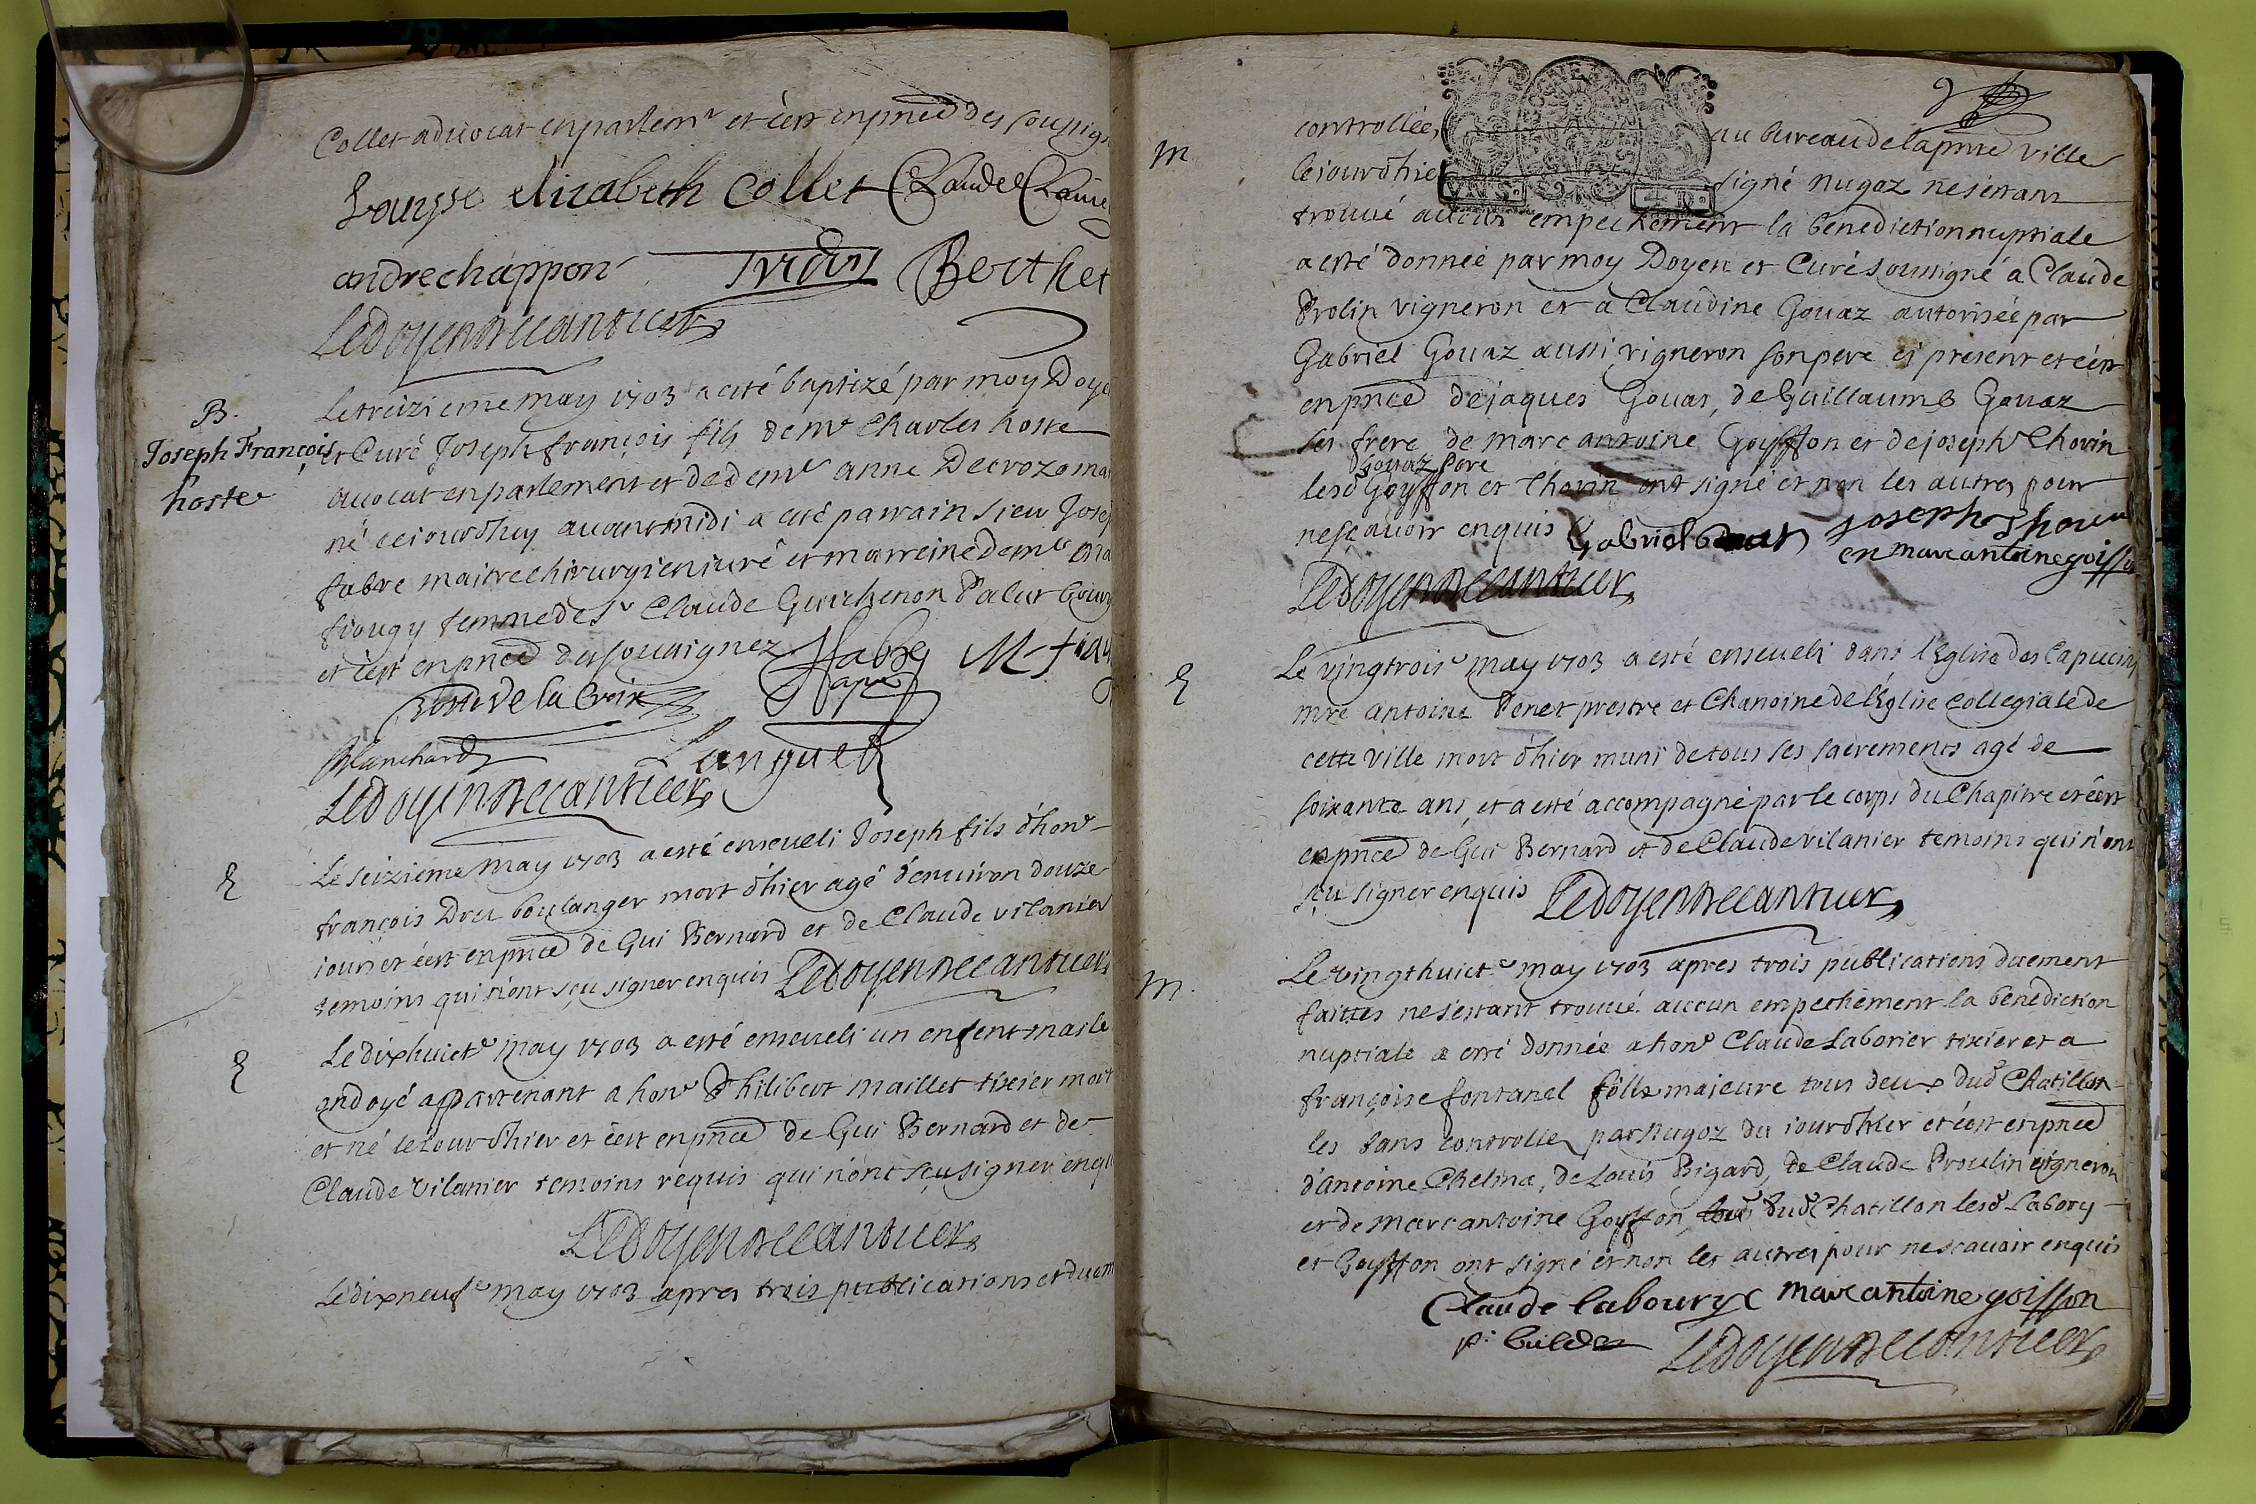 Collet advocat en parlemr et c'est en pnce des soussig
Louyse elizabeth Collet Claude
andre chappon Berthet
Le Doyen Decantier
B.
Joseph François
hoste
Le treizieme may 1703 a esté baptizé par moy Doye
et Curé Joseph françois fils de mr Charles hoste
avocat en parlement et de demle anne Decrozo ma
né ce iourdhuy avant midi a esté parrain sieu Jose
fabre maitre chirurgien iuré et marreine demle
fiougy femme de sr Claude Guichenon Palut
et c'est en pnce des sousignez fabre M. f
hoste de la Croix
Blanchard Languet
Le Doyen Decantier
E
Le seizieme may 1703 a esté enseveli Joseph fils d'honr
françois Dru boulanger mort d'hier agé d'environ douze
iours et c'est en pnce de Gui Bernard et de Claude vilanier
temoins qui n'ont sçu signer enquis Le Doyen Decantier
E
Le dixhuicte may 1703 a esté enseveli un enfent masle
ondoyé appartenant a honr Philibert maillet tixier mort
et né le iour d'hier et c'est en pnce de Gui Bernard et de
Claude Vilanier temoins requis qui n'ont sçu signer enq
Le Doyen Decantier
Le dixneufe may 1703 apres trois publications et duem
m
controllées au bureau de la pnte ville
le iour d'hier signé nugoz ne s'estant
trouvé aucun empechement la benediction nuptiale
a esté donnée par moy Doyen et Curé soussigné a Claude
Prolin vigneron et a Claudine Gouaz autorisée par
Gabriel Gouaz aussi vigneron son pere ci present et c'est
en pnce de jaques Gouas, de Guillaume Gouaz
ses frere de marc antoine Goyffon et de joseph Chovin
Gouaz pere
lesd Goyffon et Chovin ont signé et non les autres pour
ne sçavoir enquis Gabriel joseph
marc antoine goiffon
Le Doyen Decantier
E
Le vingtroise may 1703 a esté enseveli dans l'Eglise des Capucins
mre antoine Penet prestre et Chanoine de l'Eglise Collegiale de
cette ville mort d'hier muni de tous ses sacrements agé de
soixante ans, et a esté accompagné par le corps du Chapitre et c'est
en pnce de Gui Bernard et de Claude vilanier temoins qui n'ont
sçu signer enquis Le Doyen Decantier
m.
Le vingthuicte may 1703 apres trois publications duement
faittes ne s'estant trouvé aucun empechement la benediction
nuptiale a esté donnée a honr Claude Laborier tixier et a
françoise fontanel fille majeure tous deux dud Chatillon
les bans controllés par nugoz du iour d'hier et c'est en pnce
d'antoine Chelma, de Louis Bigard, de Claude Proulin vigneron
et de marc antoine Goyffon dud Chatillon lesd Labory
et Goyffon ont signé et non les autres pour ne scavoir enquis
Claude laboury marc antoine goiffon
Le Doyen Decantier